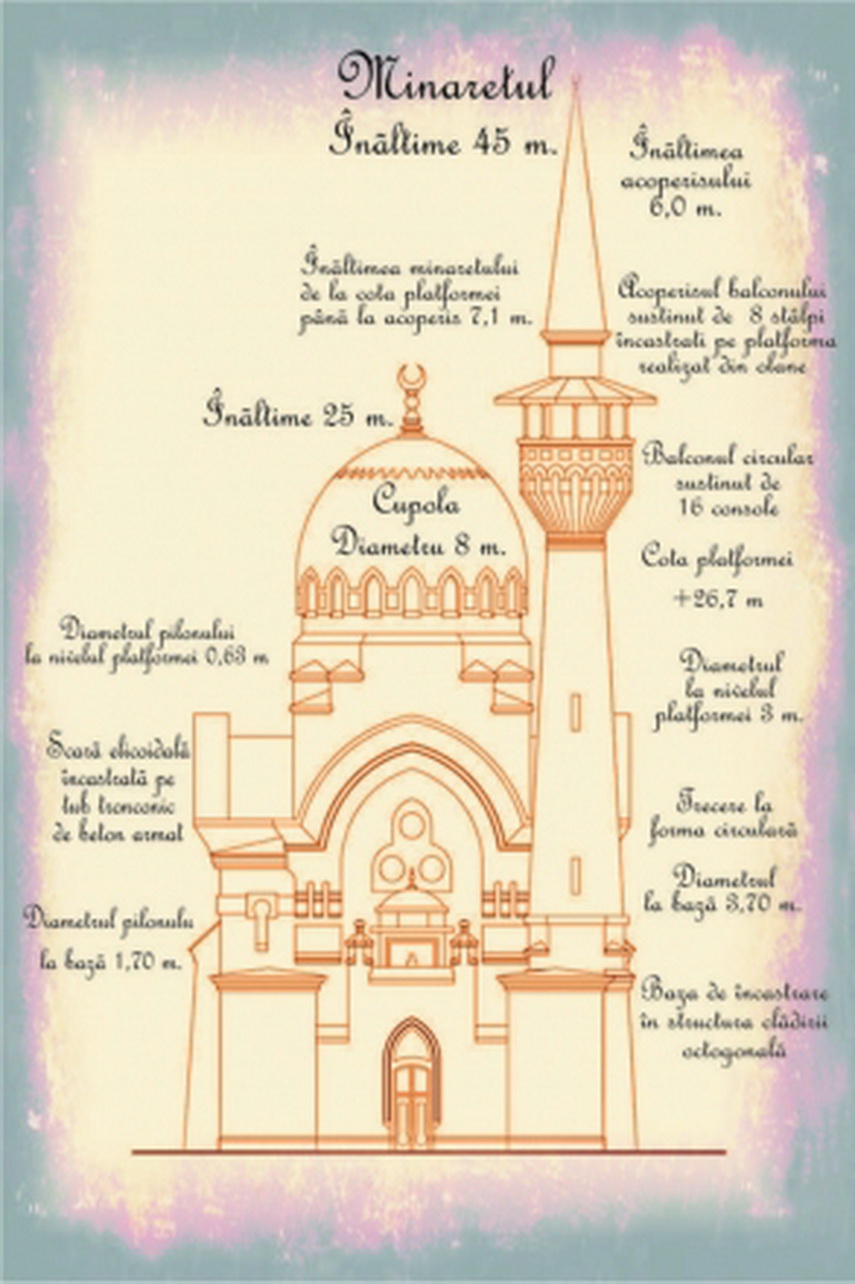 Minaretul
Înãltime 45 m.
Înãltimea
acoperisului
6,0 m.
Înãltimea minaretului
de la cota platformei
pânã la acoperis 7,1 m.
Acoperisul balconului
sustinut de 8 stâlpi
încastrati pe platforma
realizat din olane
Înãltime 25 m.
Balconul circular
sustinut de
16 console
Cupola
Diametru 8 m.
Cota platformei
+26,7 m
Diametrul pilonului
la nivelul platformei 0,63 m
Diametrul
la nivelul
platformei 3 m.
Scarã elicoidalã
încastratã pe
tub tronconic
de beton armat
Trecere la
forma circularã
Diametrul
la bazã 3,70 m.
Diametrul pilonulu
la bazã 1,70 m.
Baza de încastrare
în structura clãdirii
octogonalã